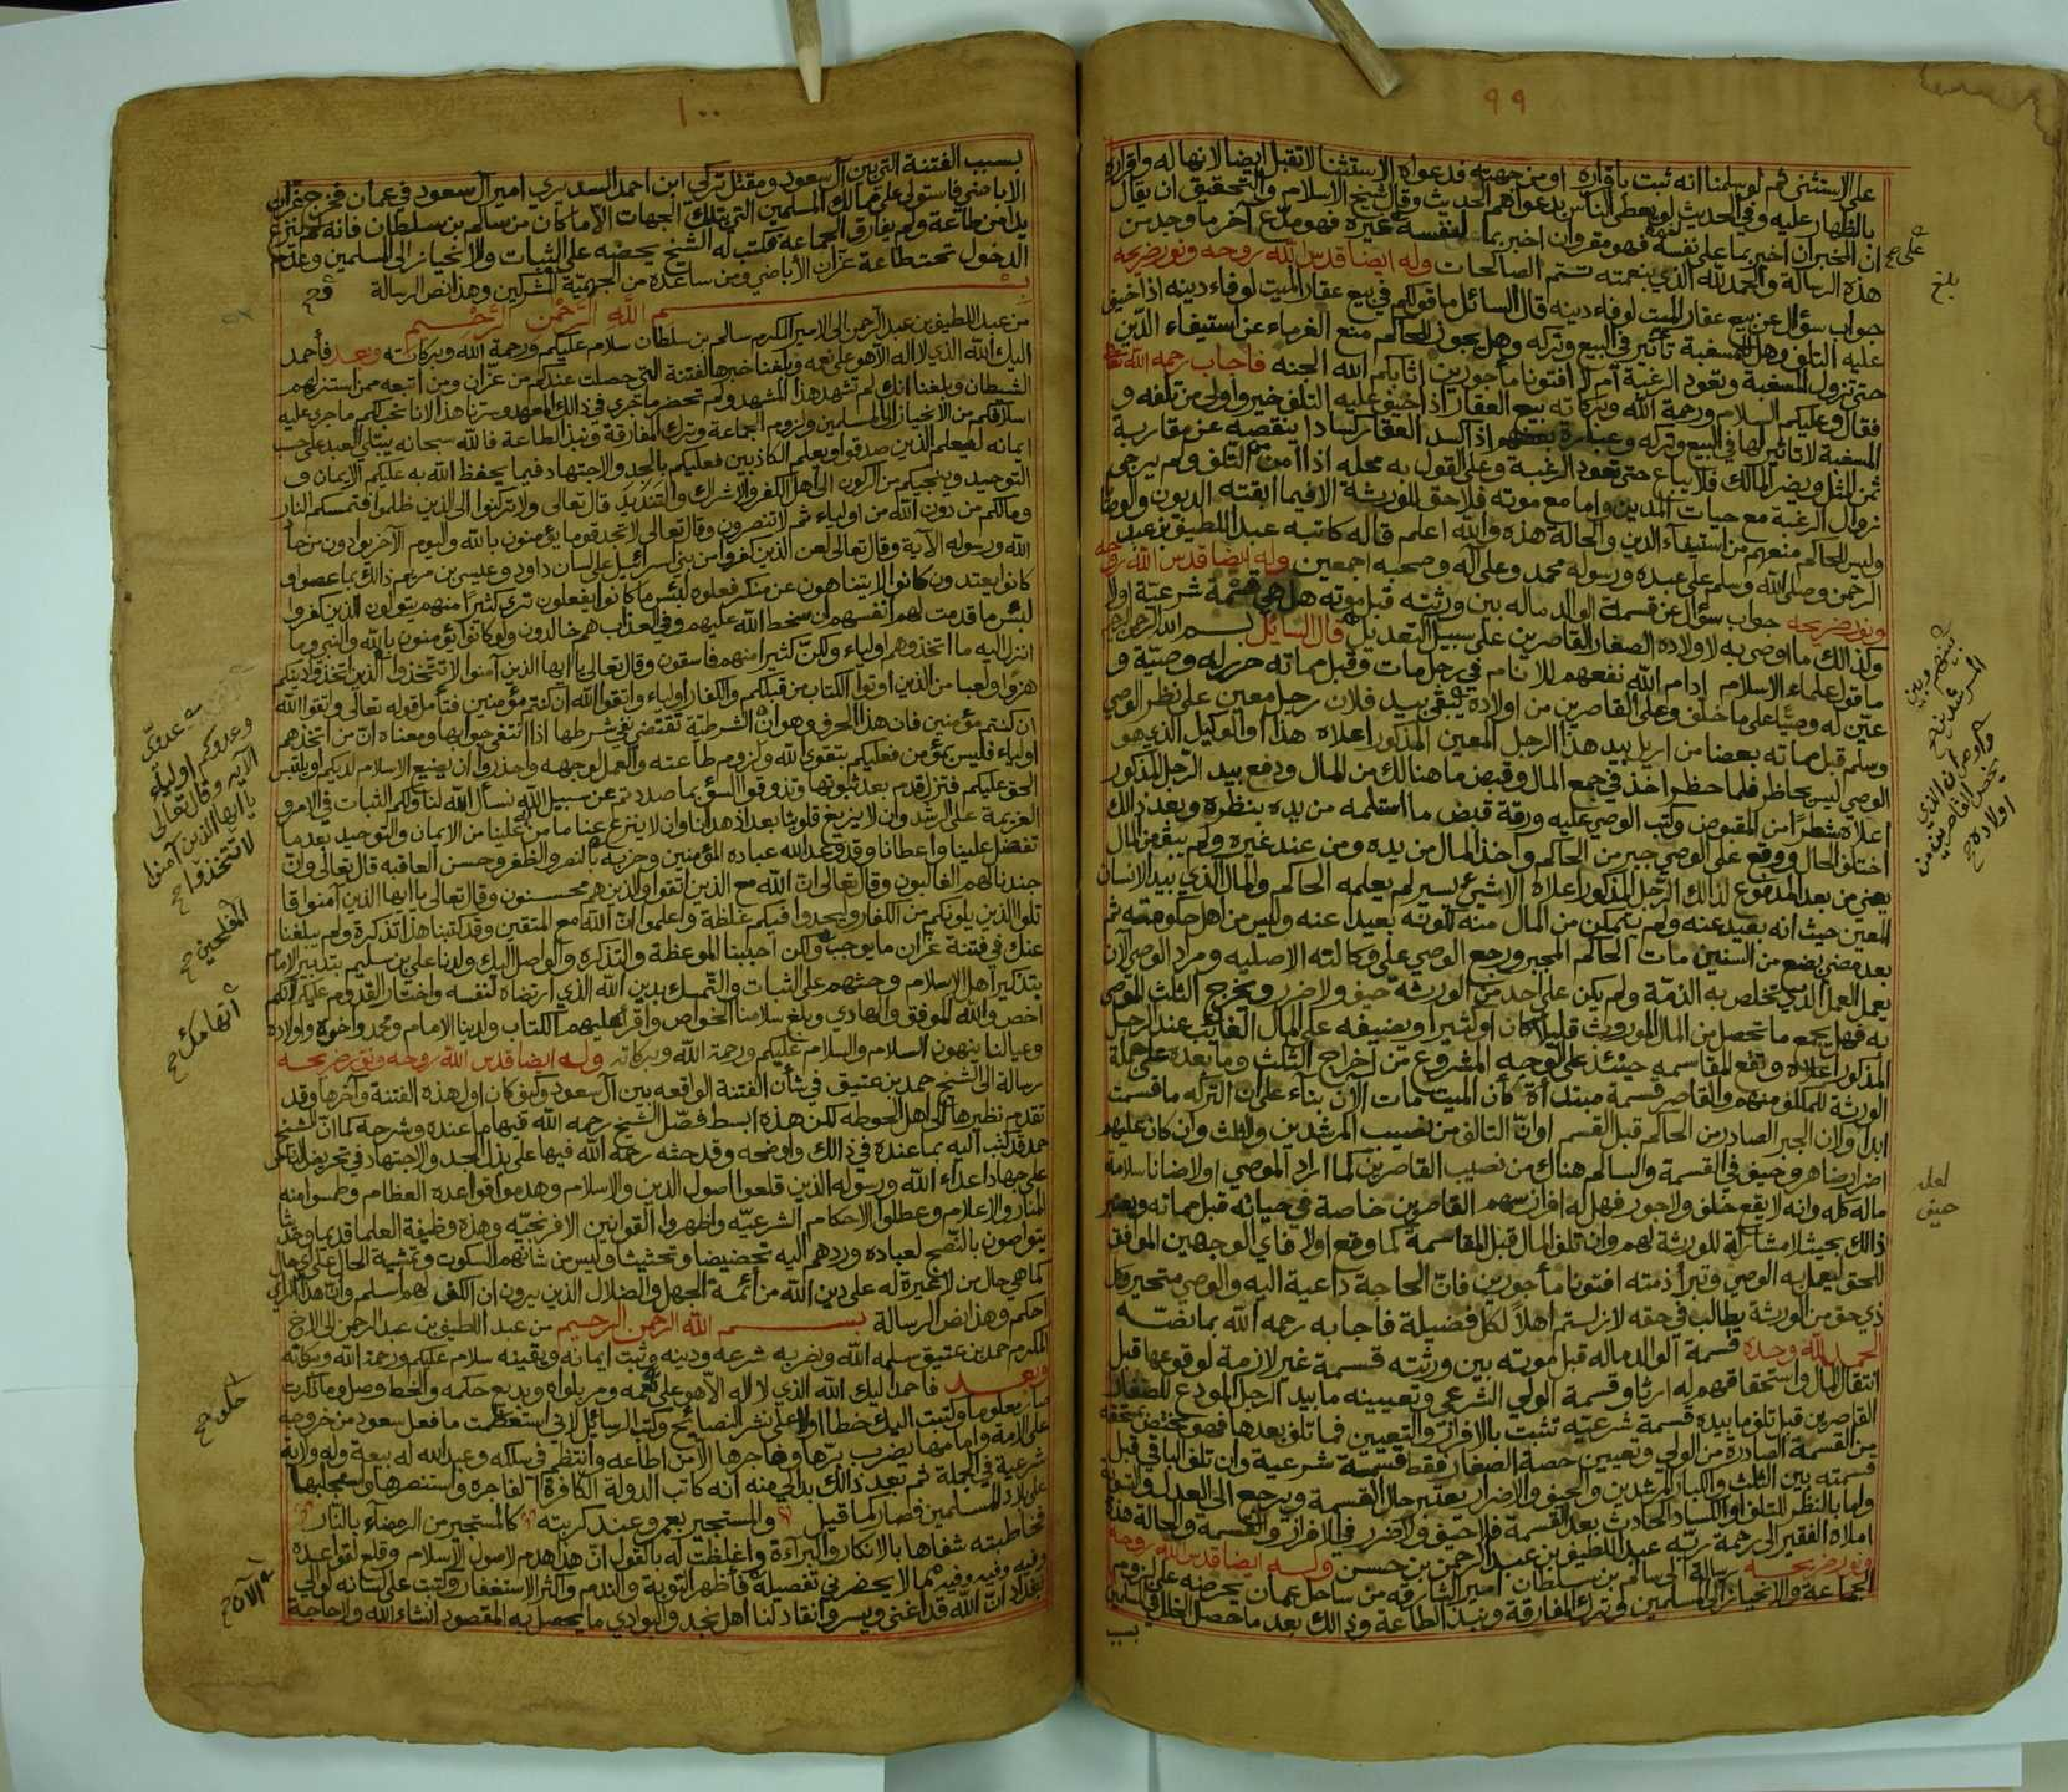 ٩٩
على الاستثنى ثم لو سلمنا انه ثبت باقراره او من جهته فدعواه الاستثنا لا تقبل ايضا لانها له واقراره
بالظهار عليه وفي الحديث لو يعطى الناس بدعواهم الحديث وقال شيخ الاسلام والتحقيق ان يقال
ان المخبر ان اخبر بما على نفسه فهو مقر وان اخبر بما لنفسه على غيره فهو مدع آخر ما وجد من
هذه الرسالة والحمد لله الذي بنعمته تتم الصالحات وله ايضا قدس الله روحه ونور ضريحه
جواب سؤال عن بيع عقار الميت لوفاء دينه قال السائل ما قولكم في بيع عقار الميت لوفاء دينه اذا خيف
عليه التلف وهل للمسغبة تأثير في البيع وتركه وهل يجوز للحاكم منع الغرماء عن استيفاء الدين
حتى تزول المسغبة وتعود الرغبة ام لا افتونا مأجورين اثابكم الله الجنه فاجاب رحمه الله تعالى
فقال وعليكم السلام ورحمة الله وبركاته بيع العقار اذا خيف عليه التلف خير واولى من تلفه و
المسغبة لا تاثير لها في البيع وتركه وعبارة بعضهم اذا كسد العقار كسادا ينقصه عن مقاربة
ثمن المثل ويضر المالك فلا يباع حتى تعود الرغبة وعلى القول به محله اذا أمن التلف ولم يرجى
زوال الرغبة مع حيات المدين واما مع موته فلا حق للورثة الا فيما ابقته الديون والوصايا
وليس للحاكم منعهم من استيفاء الدين والحالة هذه والله اعلم قاله كاتبه عبد اللطيف بن عبد
الرحمن وصلى الله وسلم على عبده ورسوله محمد وعلى آله وصحبه اجمعين وله ايضا قدس الله روحه
ونور ضريحه جواب سؤال عن قسمة الوالد ماله بين ورثته قبل موته هل هي قسمة شرعية اولا
وكذالك ما اوصى به لاولاده الصغار القاصرين على سبيل التعديل قال السايل بسم الله الرحمن الرحيم
ما قول علماء الاسلام ادام الله نفعهم للانام في رجل مات وقبل مماته حرر له وصية و
عين له وصيا على ما خلف وعلى القاصرين من اولاده يبقى بيد فلان رجل معين على نظر الوصي
وسلم قبل مماته بعضا من اريل بيد هذا الرجل المعين المذكور اعلاه هذا والوكيل الذي هو
الوصي ليس بحاظر فلما حظر اخذ في جمع المال وقبض ما هنالك من المال ودفع بيد الرجل المذكور
اعلاه شطرا من المقبوض وكتب الوصي عليه ورقة قبض ما استلمه من يده بنظره وبعد ذالك
اختلف الحال ووقع على الوصي جبر من الحاكم واخذ المال من يده ومن عند غيره ولم يبق من المال
يعني من بعد المدفوع لذالك الرجل المذكور اعلاه الا شيئ يسير لم يعلمه الحاكم والمال الذي بيد الانسان
المعين حيث انه بعيد عنه ولم يتمكن من المال منه لكونه بعيدا عنه وليس من اهل حكومته ثم
بعد مضي بضع من السنين مات الحاكم المجبر ورجع الوصي على وكالته الاصليه ومراد الوصي الآن
يعمل العمل الذي تخلص به الذمة ولم يكن على احد من الورثة حيف ولا ضرر ويخرج الثلث الموصى
به فهل يجمع ما تحصل من المال الموروث قليلا كان او كثيرا ويضيفه على المال الغائب عند الرجل
المذكور اعلاه وتقع المقاسمه حينئذ على الوجه المشروع من اخراج الثلث وما بعده على جملة
الورثة للمكلف منهم والقاصر قسمة مبتدأة كأن الميت مات الآن بناء على ان التركه ما قسمت
ابدا ولان الجبر الصادر من الحاكم قبل القسم او ان التالف من نصيب المرشدين والثلث وان كان عليهم
اضرارضاهر وحيف في القسمة والسالم هناك من نصيب القاصرين كما اراد الموصي او لا ضانا سلامة
ماله كله وانه لا يقع خلف ولا جور فهل له افراز سهم القاصرين خاصة في حياته قبل مماته ويعتبر
ذالك بحيث لا مشاركة للورثة لهم وان تلف المال قبل المقاسمة كما وقع اولا فاي الوجهين الموافق
للحق ليعمل به الوصي وتبرأ ذمته افتونا مأجورين فان الحاجة داعية اليه والوصي متحير وكل
ذي حق من الورثة يطالب في حقه لازلتم اهلا لكل فضيلة فاجابه رحمه الله بما نصه
الحمد لله وحده قسمة الوالد ماله قبل موته بين ورثته قسمة غير لازمة لوقوعها قبل
انتقال المال واستحقاقهم له ارثا وقسمة الولي الشرعي وتعيينه ما بيد الرجل المودع للصغار
القاصرين قبل تلف ما بيده قسمة شرعيه تثبت بالافراز والتعيين فما تلف بعدها فهو مختص بمستحقه
من القسمة الصادرة من الولي وتعيين حصة الصغار فقط قسمة شرعية وان تلف الباقي قبل
قسمته بين الثلث والكبار المرشدين والحيف والاضرار يعتبر حال القسمة ويرجع الى العدل والتسوية
ولها بالنظر للتلف او الكساد الحادث بعد القسمة فلا حيف ولا ضرر في الافراز والقسمة والحالة هذه
املاه الفقير الى رحمة ربه عبد اللطيف بن عبد الرحمن بن حسن وله ايضا قدس الله روحه
ونور ضريحه رسالة الى سالم بن سلطان امير الشارقه من ساحل عمان يحرضه على لزوم
الجماعة والانحياز الى المسلمين وترك المفارقة ونبذ الطاعة وذالك بعد ما حصل الخلل في المسلمين
بسبب
على صح
بلغ
بينهم وبين
المرشدين صح
واوصى ان الذي
يخص القاصرين من
اولاده صح
لعله
حيف
١٠٠
بسبب الفتنة التي بين آل سعود ومقتل تركي ابن احمد السديري امير آل سعود في عمان فخرج عزان
الاباضي فاستولى على ممالك المسلمين التي بتلك الجهات الا ما كان من سالم بن سلطان فانه لم ينزع
يدا من طاعة ولم يفارق الجماعة فكتب له الشيخ يحضه على الثبات والانحياز الى المسلمين وعدم
الدخول تحت طاعة عزان الأباضي ومن ساعده من الجهمية المشركين وهذا نص الرسالة
بسم الله الرحمن الرحيم
من عبد اللطيف بن عبد الرحمن الى الامير المكرم سالم بن سلطان سلام عليكم ورحمة الله وبركاته وبعد فأحمد
اليك الله الذي لا اله الا هو على نعمه وبلغنا خبر هالفتنة التي حصلت عندكم من عزان ومن اتبعه ممن استنزلهم
الشيطان وبلغنا انك لم تشهد هذا المشهد ولم تحضر ما جرى في ذالك المعهد وسرنا هذا لانا نحب لكم ما جرى عليه
اسلافكم من الانحياز الى المسلمين ولزوم الجماعة وترك المفارقة ونبذ الطاعة فالله سبحانه يبتلي العبد على حسب
ايمانه ليعلم الذين صدقوا ويعلم الكاذبين فعليكم بالجد والاجتهاد فيما يحفظ الله به عليكم الايمان و
التوحيد وينجيكم من الركون الى اهل الكفر والاشراك والتنديد قال تعالى ولا تركنوا الى الذين ظلموا فتمسكم النار
ومالكم من دون الله من اولياء ثم لا تنصرون وقال تعالى لا تجد قوما يؤمنون بالله واليوم الآخر يوادون من حاد
الله ورسوله الآية وقال تعالى لعن الذين كفروا من بني اسرائيل على لسان داود وعيسى بن مريم ذالك بما عصوا و
كانوا يعتدون كانوا لا يتناهون عن منكر فعلوه لبئس ما كانوا يفعلون ترى كثيرا منهم يتولون الذين كفروا
لبئس ما قدمت لهم انفسهم ان سخط الله عليهم وفي العذاب هم خالدون ولو كانوا يؤمنون بالله والنبي وما
انزل اليه ما اتخذوهم اولياء ولكن كثيرا منهم فاسقون وقال تعالى يا ايها الذين آمنوا لا تتخذوا الذين اتخذوا دينكم
هزوا ولعبا من الذين اوتوا الكتاب من قبلكم والكفار اولياء واتقوا الله ان كنتم مؤمنين فتأمل قوله تعالى واتقوا الله
ان كنتم مؤمنين فان هذا الحرف وهو ان الشرطية تقتضي نفي شرطها اذا انتفى جوابها ومعناه ان من اتخذهم
اولياء فليس بمؤمن فعليكم بتقوى الله ولزوم طاعته والعمل لوجهه واحذروا ان يضيع الاسلام لديكم او يلتبس
الحق عليكم فتزل قدم بعد ثبوتها وتذوقوا السوء بما صددتم عن سبيل الله نسأل الله لنا ولكم الثبات في الامر و
العزيمة على الرشد وان لا يزيغ قلوبنا بعد اذ هدانا وان لا ينزع عنا ما من به علينا من الايمان والتوحيد بعد ما
تفضل علينا واعطانا وقد وعد الله عباده المؤمنين وحزبه بالنصر والظفر وحسن العاقبه قال تعالى وان
جندنا لهم الغالبون وقال تعالى ان الله مع الذين اتقوا والذين هم محسنون وقال تعالى يا ايها الذين آمنوا قا
تلوا الذين يلونكم من الكفار وليجدوا فيكم غلظة واعلموا ان الله مع المتقين وقد كتبنا هذا تذكرة ولم يبلغنا
عنك في فتنة عزان ما يوجب ولكن احببنا الموعظة والتذكره والواصل اليك ولدنا علي بن سليم بتدبير الامام
بتذكير اهل الاسلام وحثهم على الثبات والتمسك بدين الله الذي ارتضاه لنفسه واختار القدوم عليكم لانكم
اخص والله الموفق والهادي وبلغ سلامنا الخواص واقرأ عليهم الكتاب ولدينا الامام ومحمد واخوه واولاده
وعيالنا ينهون السلام والسلام عليكم ورحمة الله وبركاته وله ايضا قدس الله روحه ونور ضريحه
رسالة الى الشيخ حمد بن عتيق في شأن الفتنة الواقعه بين آل سعود وكيف كان اول هذه الفتنة وآخرها وقد
تقدم نظيرها الى اهل الحوطه لكن هذه ابسط فصل الشيخ رحمه الله فيها ما عنده وشرحه كما ان الشيخ
حمد قد كتب اليه بما عنده في ذالك واوضحه وقد حثه رحمه الله فيها على بذل الجد والاجتهاد في تحريض الناس
على جهاد اعداء الله ورسوله الذين قلعوا اصول الدين والاسلام وهدموا قواعده العظام وطمسوا منه
المنار والاعلام وعطلوا الاحكام الشرعيه واظهروا القوانين الافرنجيه وهذه وظيفة العلما قديما وحديثا
يتواصون بالنصح لعباده وردهم اليه تحضيضا وتحثيثا وليس من شانهم السكوت وتمشية الحال على اي حال
كما هي حال من لا غيرة له على دين الله من أئمة الجهل والضلال الذين يرون ان الكف لهم اسلم وان هذا الراي
احكم وهذا نص الرسالة بسم الله الرحمن الرحيم من عبد اللطيف بن عبد الرحمن الى الاخ
المكرم حمد بن عتيق سلمه الله ونصر به شرعه ودينه وثبت ايمانه ويقينه سلام عليكم ورحمة الله وبركاته
وبعد فاحمد اليك الله الذي لا اله الا هو على نعمه ومر بلواه وبديع حكمه والخط وصل وما ذكرت
صار معلوما وكتبت اليك خطا اولا على نشر النصائح وكتب الرسائل لاني استعظمت ما فعل سعود من خروجه
على الامة وامامها يضرب برها وفاجرها الا من اطاعه وانتظم في سلكه وعبد الله له بيعة وله ولاية
شرعية في الجملة ثم بعد ذالك بدا لي منه انه كاتب الدولة الكافرة الفاجره واستنصرها واستجلبها
على بلاد المسلمين فصار كما قيل والمستجير بعمرو عند كربته كالمستجير من الرمضآء بالنار
فخاطبته شفاها بالانكار والبراءة واغلظت له بالقول ان هذا هدم لاصول الاسلام وقلع لقواعده
وفيه وفيه وفيه مما لا يحضرني تفصيله فأظهر التوبة والندم واكثر الاستغفار وكتبت على لسانه لوالي
بغداد ان الله قد اغنى ويسر وانقاد لنا اهل نجد والبوادي ما يحصل به المقصود انشاء الله ولا حاجة
عدوي
وعدوكم اولياء
الآيه وقال تعالى
يا ايها الذين آمنوا
لا تتخذوا صح
المفلحين صح
اتهامك صح
حلو صح
الآن صح